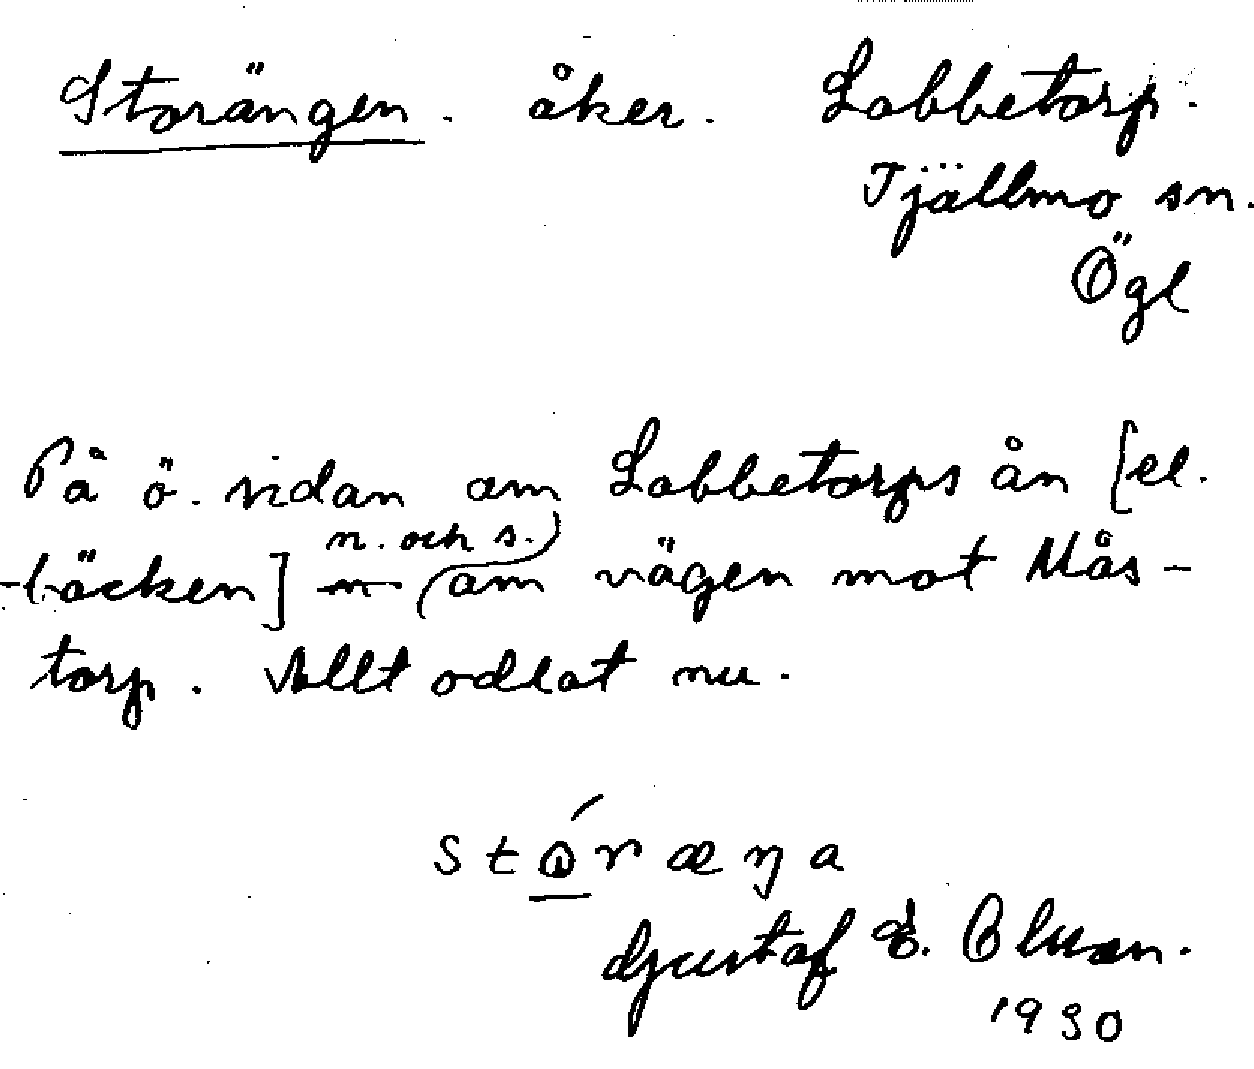 Storängen. åker. Lobbetorp.
Tjällmo sn.
Ögl
På ö. sidan om Lobbetorps ån [el.
n. och s.
-bäcken] m (om vägen mot Mås-
torp. Allt odlat nu.
stǫ́ræŋa
Gustaf E. Olsson.
1930